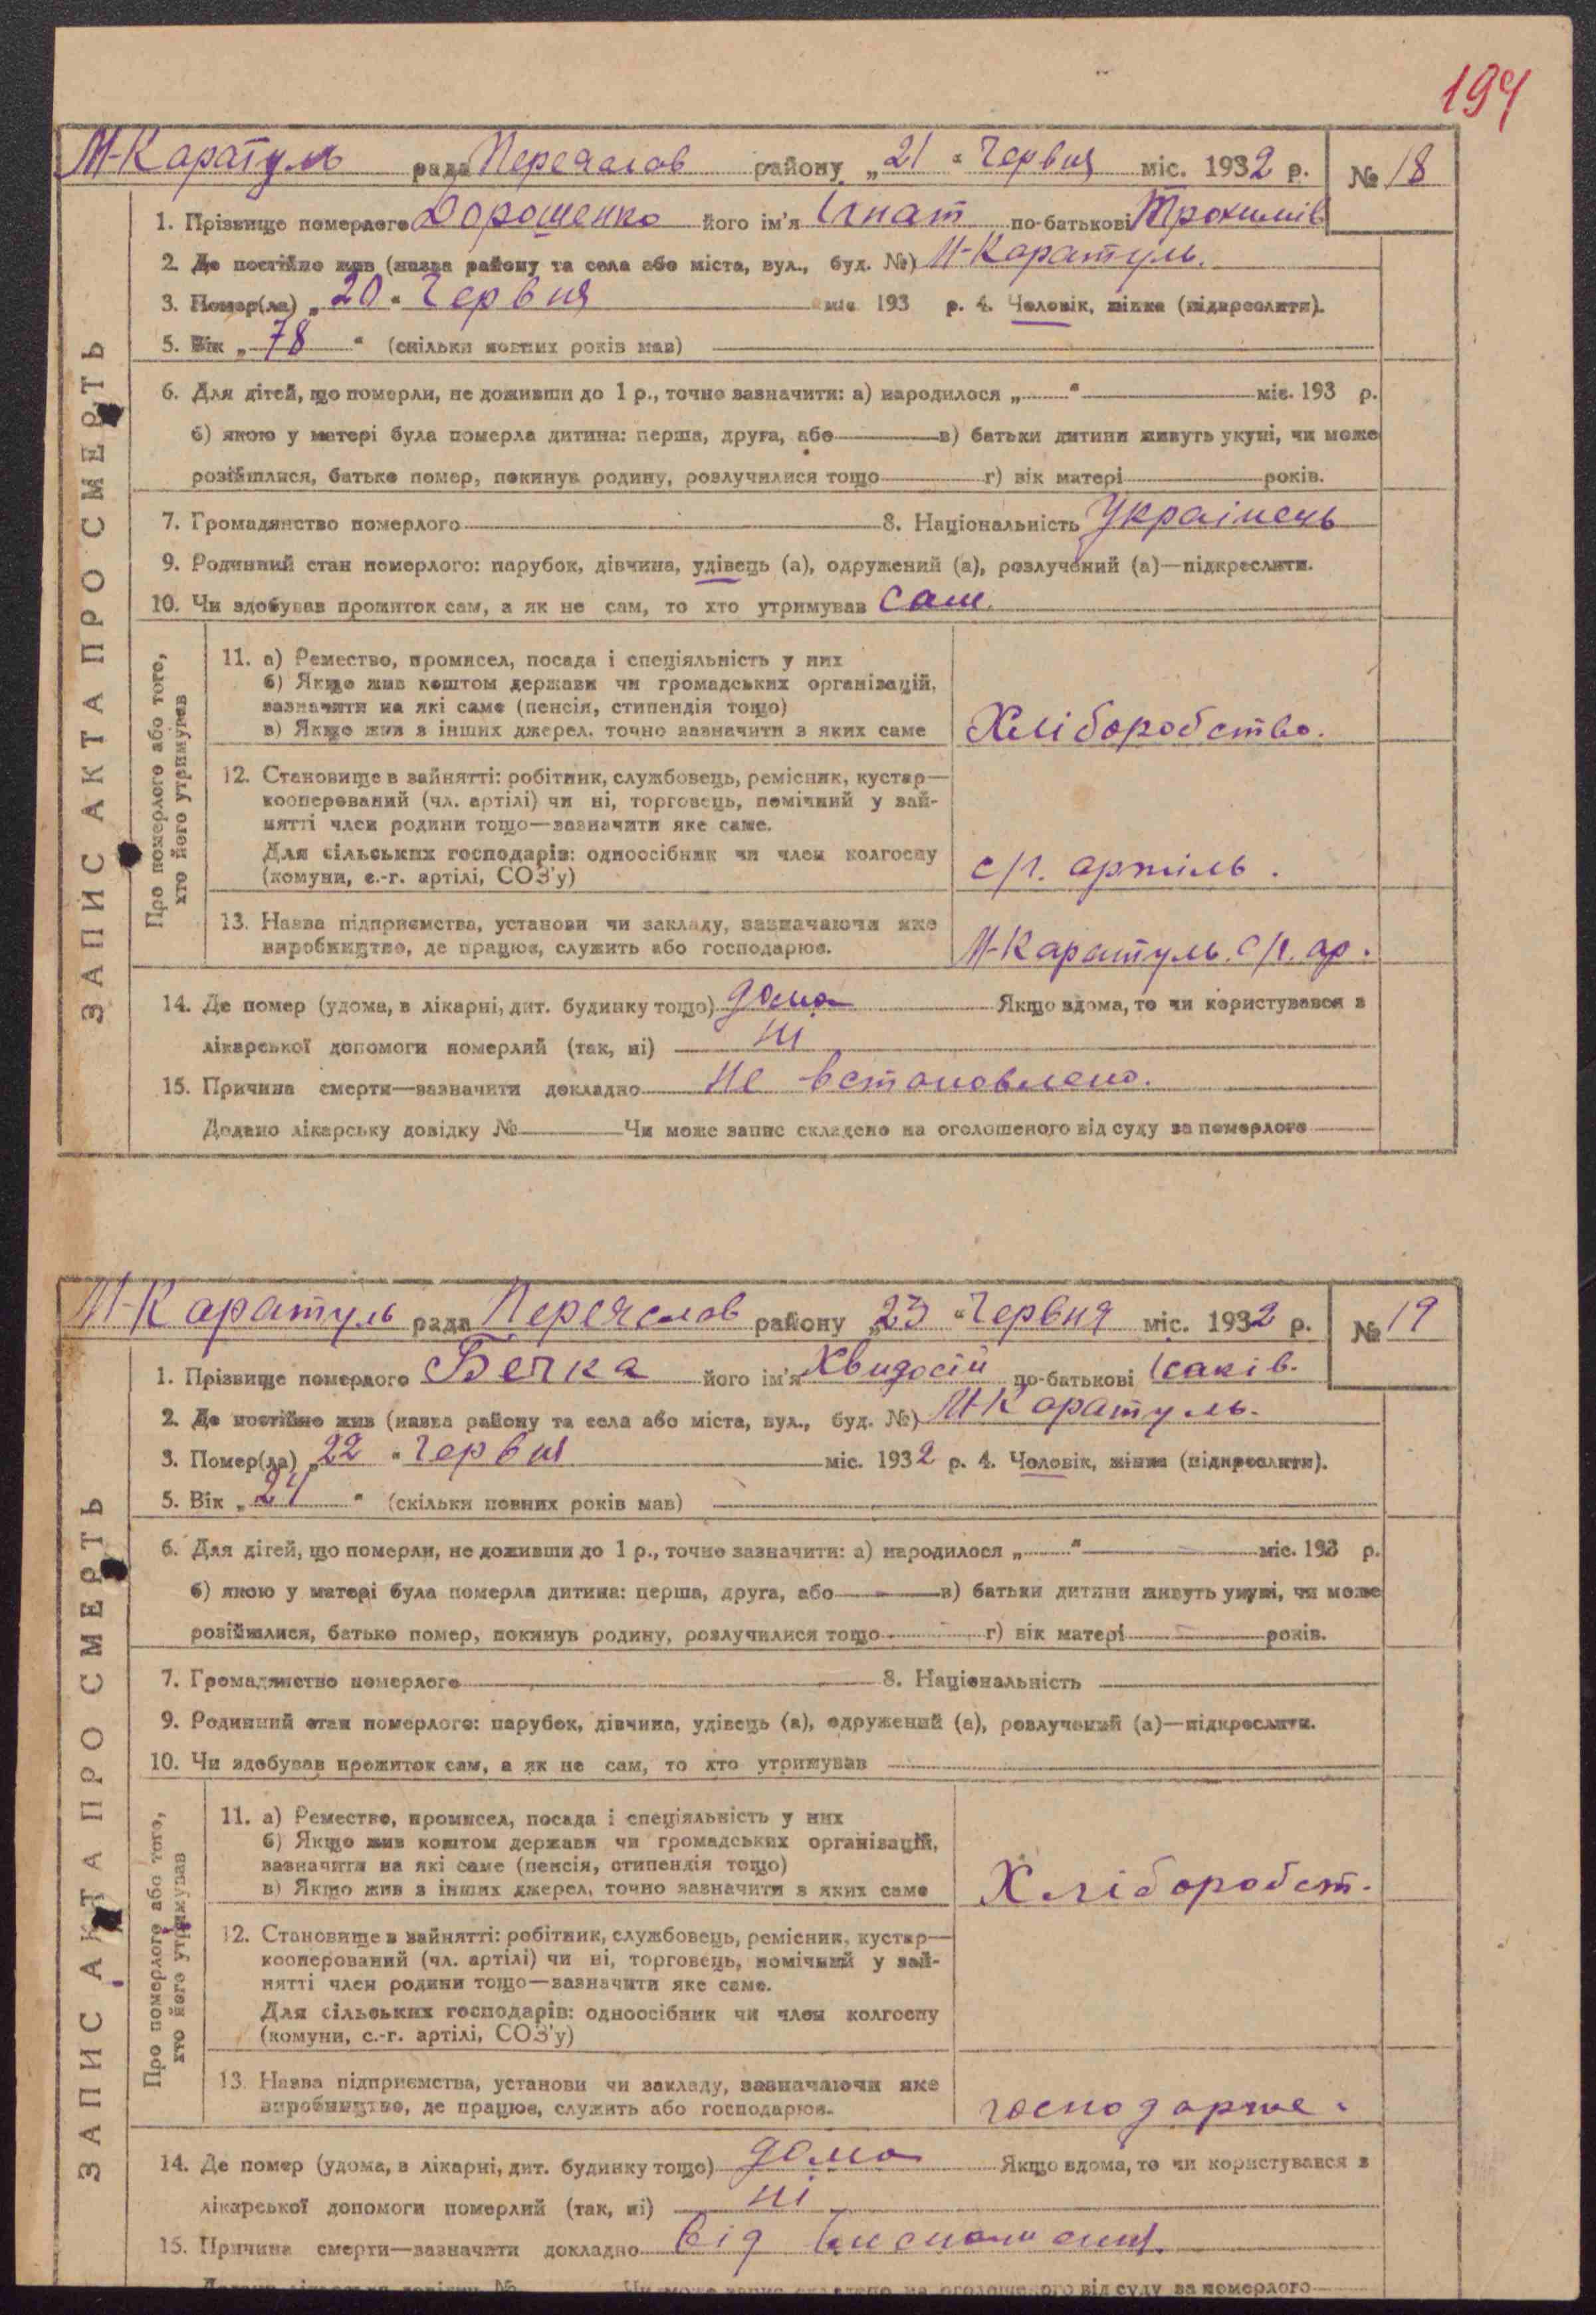 194
М-Каратуль рада Переяслов району „21“ Червня міс. 1932 р. № 18
1. Прізвище померлого Дорошенко його ім'я Ігнат по-батькові Трохимів
2. Де постійно жив (назва району та села або міста, вул., буд. №) М-Каратуль.
3. Помер(ла) „20“ Червня міс. 193 р. 4. Чоловік, жінка (підкреслити).
5. Вік „78“ (скільки повних років мав)
6. Для дітей, що померли, не доживши до 1 р., точно зазначити: а) народилося „ “ міс. 193 р.
б) якою у матері була померла дитина: перша, друга, або в) батьки дитини живуть укупі, чи може
розійшлися, батько помер, покинув родину, розлучилися тощо г) вік матері років.
7. Громадянство померлого 8. Національність Українець
9. Родинний стан померлого: парубок, дівчина, удівець (а), одружений (а), розлучений (а)—підкреслити.
10. Чи здобував прожиток сам, а як не сам, то хто утримував Сам.
ЗАПИС АКТА ПРО СМЕРТЬ
Про померлого або того,
хто його утримував
11. а) Ремество, промисел, посада і спеціяльність у них
б) Якщо жив коштом держави чи громадських організацій,
зазначити на які саме (пенсія, стипендія тощо)
в) Якщо жив з інших джерел, точно зазначити з яких саме Хліборобство.
12. Становище в зайнятті: робітник, службовець, ремісник, кустар—
кооперований (чл. артілі) чи ні, торговець, помічний у зай-
нятті член родини тощо—зазначити яке саме.
Для сільських господарів: одноосібник чи член колгоспу
(комуни, с.-г. артілі, СОЗ'у) с/г. артіль.
13. Назва підприємства, установи чи закладу, зазначаючи яке
виробництво, де працює, служить або господарює. М-Каратуль. С/г. ар.
14. Де помер (удома, в лікарні, дит. будинку тощо) дома Якщо вдома, то чи користувався з
лікарської допомоги померлий (так, ні) ні
15. Причина смерти—зазначити докладно Не встановлено.
Додано лікарську довідку № Чи може запис складено на оголошеного від суду за померлого
М-Каратуль рада Переяслов району „23“ Червня міс. 1932 р. № 19
1. Прізвище померлого Бечка його ім'я Хвидосій по-батькові Ісаків.
2. Де постійно жив (назва району та села або міста, вул., буд. №) М-Каратуль.
3. Помер(ла) „22“ Червня міс. 1932 р. 4. Чоловік, жінка (підкреслити).
5. Вік „24“ (скільки повних років мав)
6. Для дітей, що померли, не доживши до 1 р., точно зазначити: а) народилося „ “ міс. 193 р.
б) якою у матері була померла дитина: перша, друга, або в) батьки дитини живуть укупі, чи може
розійшлися, батько помер, покинув родину, розлучилися тощо г) вік матері років.
7. Громадянство померлого 8. Національність
9. Родинний стан померлого: парубок, дівчина, удівець (а), одружений (а), розлучений (а)—підкреслити.
10. Чи здобував прожиток сам, а як не сам, то хто утримував
ЗАПИС АКТА ПРО СМЕРТЬ
Про померлого або того,
хто його утримував
11. а) Ремество, промисел, посада і спеціяльність у них
б) Якщо жив коштом держави чи громадських організацій,
зазначити на які саме (пенсія, стипендія тощо)
в) Якщо жив з інших джерел, точно зазначити з яких саме Хліборобст.
12. Становище в зайнятті: робітник, службовець, ремісник, кустар—
кооперований (чл. артілі) чи ні, торговець, помічний у зай-
нятті член родини тощо—зазначити яке саме.
Для сільських господарів: одноосібник чи член колгоспу
(комуни, с.-г. артілі, СОЗ'у)
13. Назва підприємства, установи чи закладу, зазначаючи яке
виробництво, де працює, служить або господарює.
14. Де помер (удома, в лікарні, дит. будинку тощо) дома Якщо вдома, то чи користувався з
лікарської допомоги померлий (так, ні) ні
15. Причина смерти—зазначити докладно Від
Додано лікарську довідку № Чи може запис складено на оголошеного від суду за померлого